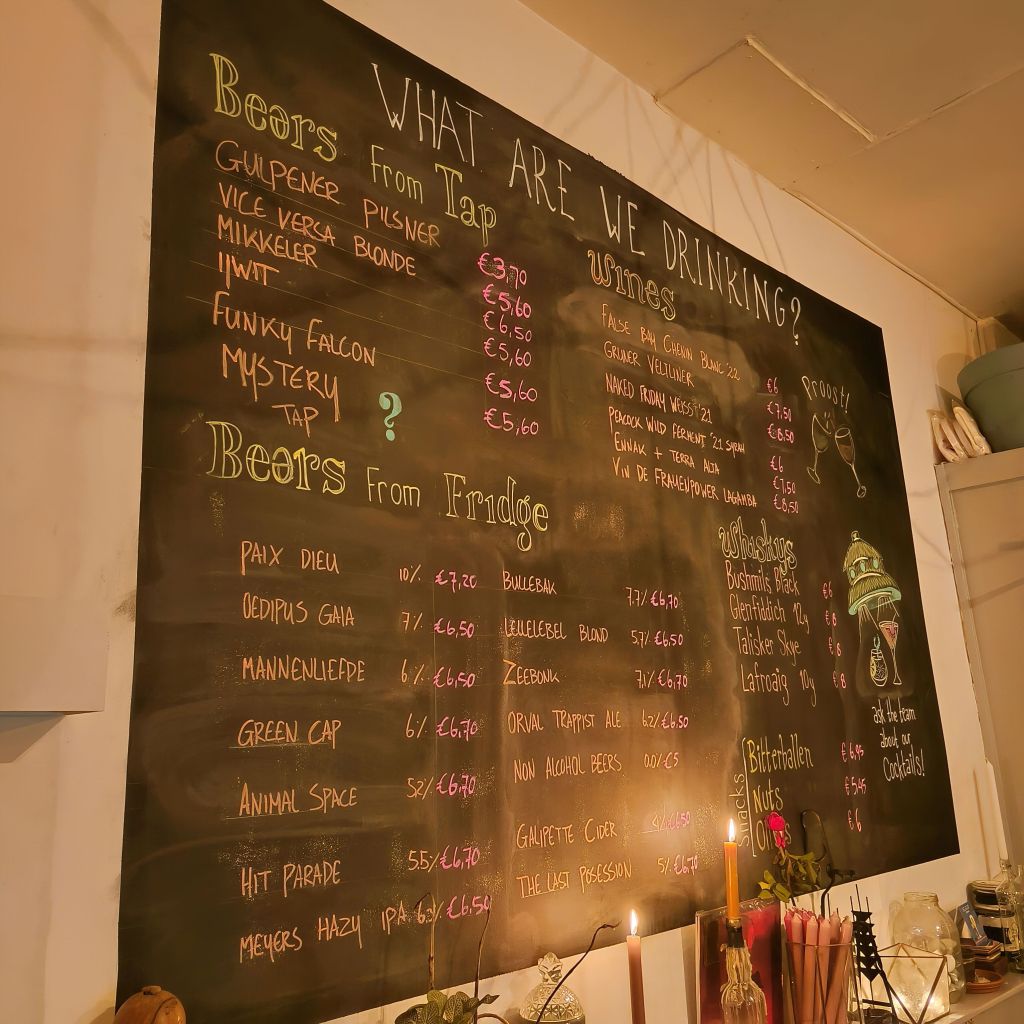 WHAT ARE WE DRINKING?
Beers From Tap
GULPENER PILSNER €3,70
VICE VERSA BLONDE €5,60
MIKKELER €6,50
IJWIT €5,60
FUNKY FALCON €5,60
MYSTERY TAP ? €5,60
Beers From Fridge
PAIX DIEU 10% €7,20
OEDIPUS GAIA 7% €6,50
MANNENLIEFDE 6% €6,50
GREEN CAP 6% €6,70
ANIMAL SPACE 5.2% €6,70
HIT PARADE 5.5% €6,70
MEYERS HAZY IPA 6.3% €6.50
BULLEBAK 7.7% €6,70
LELLEBEL BLOND 5,7% €6,50
ZEEBONK 7,1% €6,70
ORVAL TRAPPIST ALE 6.2% €6.50
NON ALCOHOL BEERS 0.0% €5
GALIPETTE CIDER 4% €6.50
THE LAST POSESSION 5% €6,70
Wines
FALSE BAY CHENIN BLANC '22 €6
GRUNER VELTLINER €7,50
NAKED FRIDAY WEISS '21 €8,50
PEACOCK WILD FERMENT '21 SYRAH €6
ENNAK + TERRA ALTA €7,50
VIN DE FRAUENPOWER LAGAMBA €8,50
Proost!
Whiskys
Bushmills Black €6
Glenfiddich 12y €8
Talisker Skye €8
Lafroaig 10y €8
ask the team
about our
Cocktails!
Snacks
Bitterballen €6,95
Nuts €5,45
€6